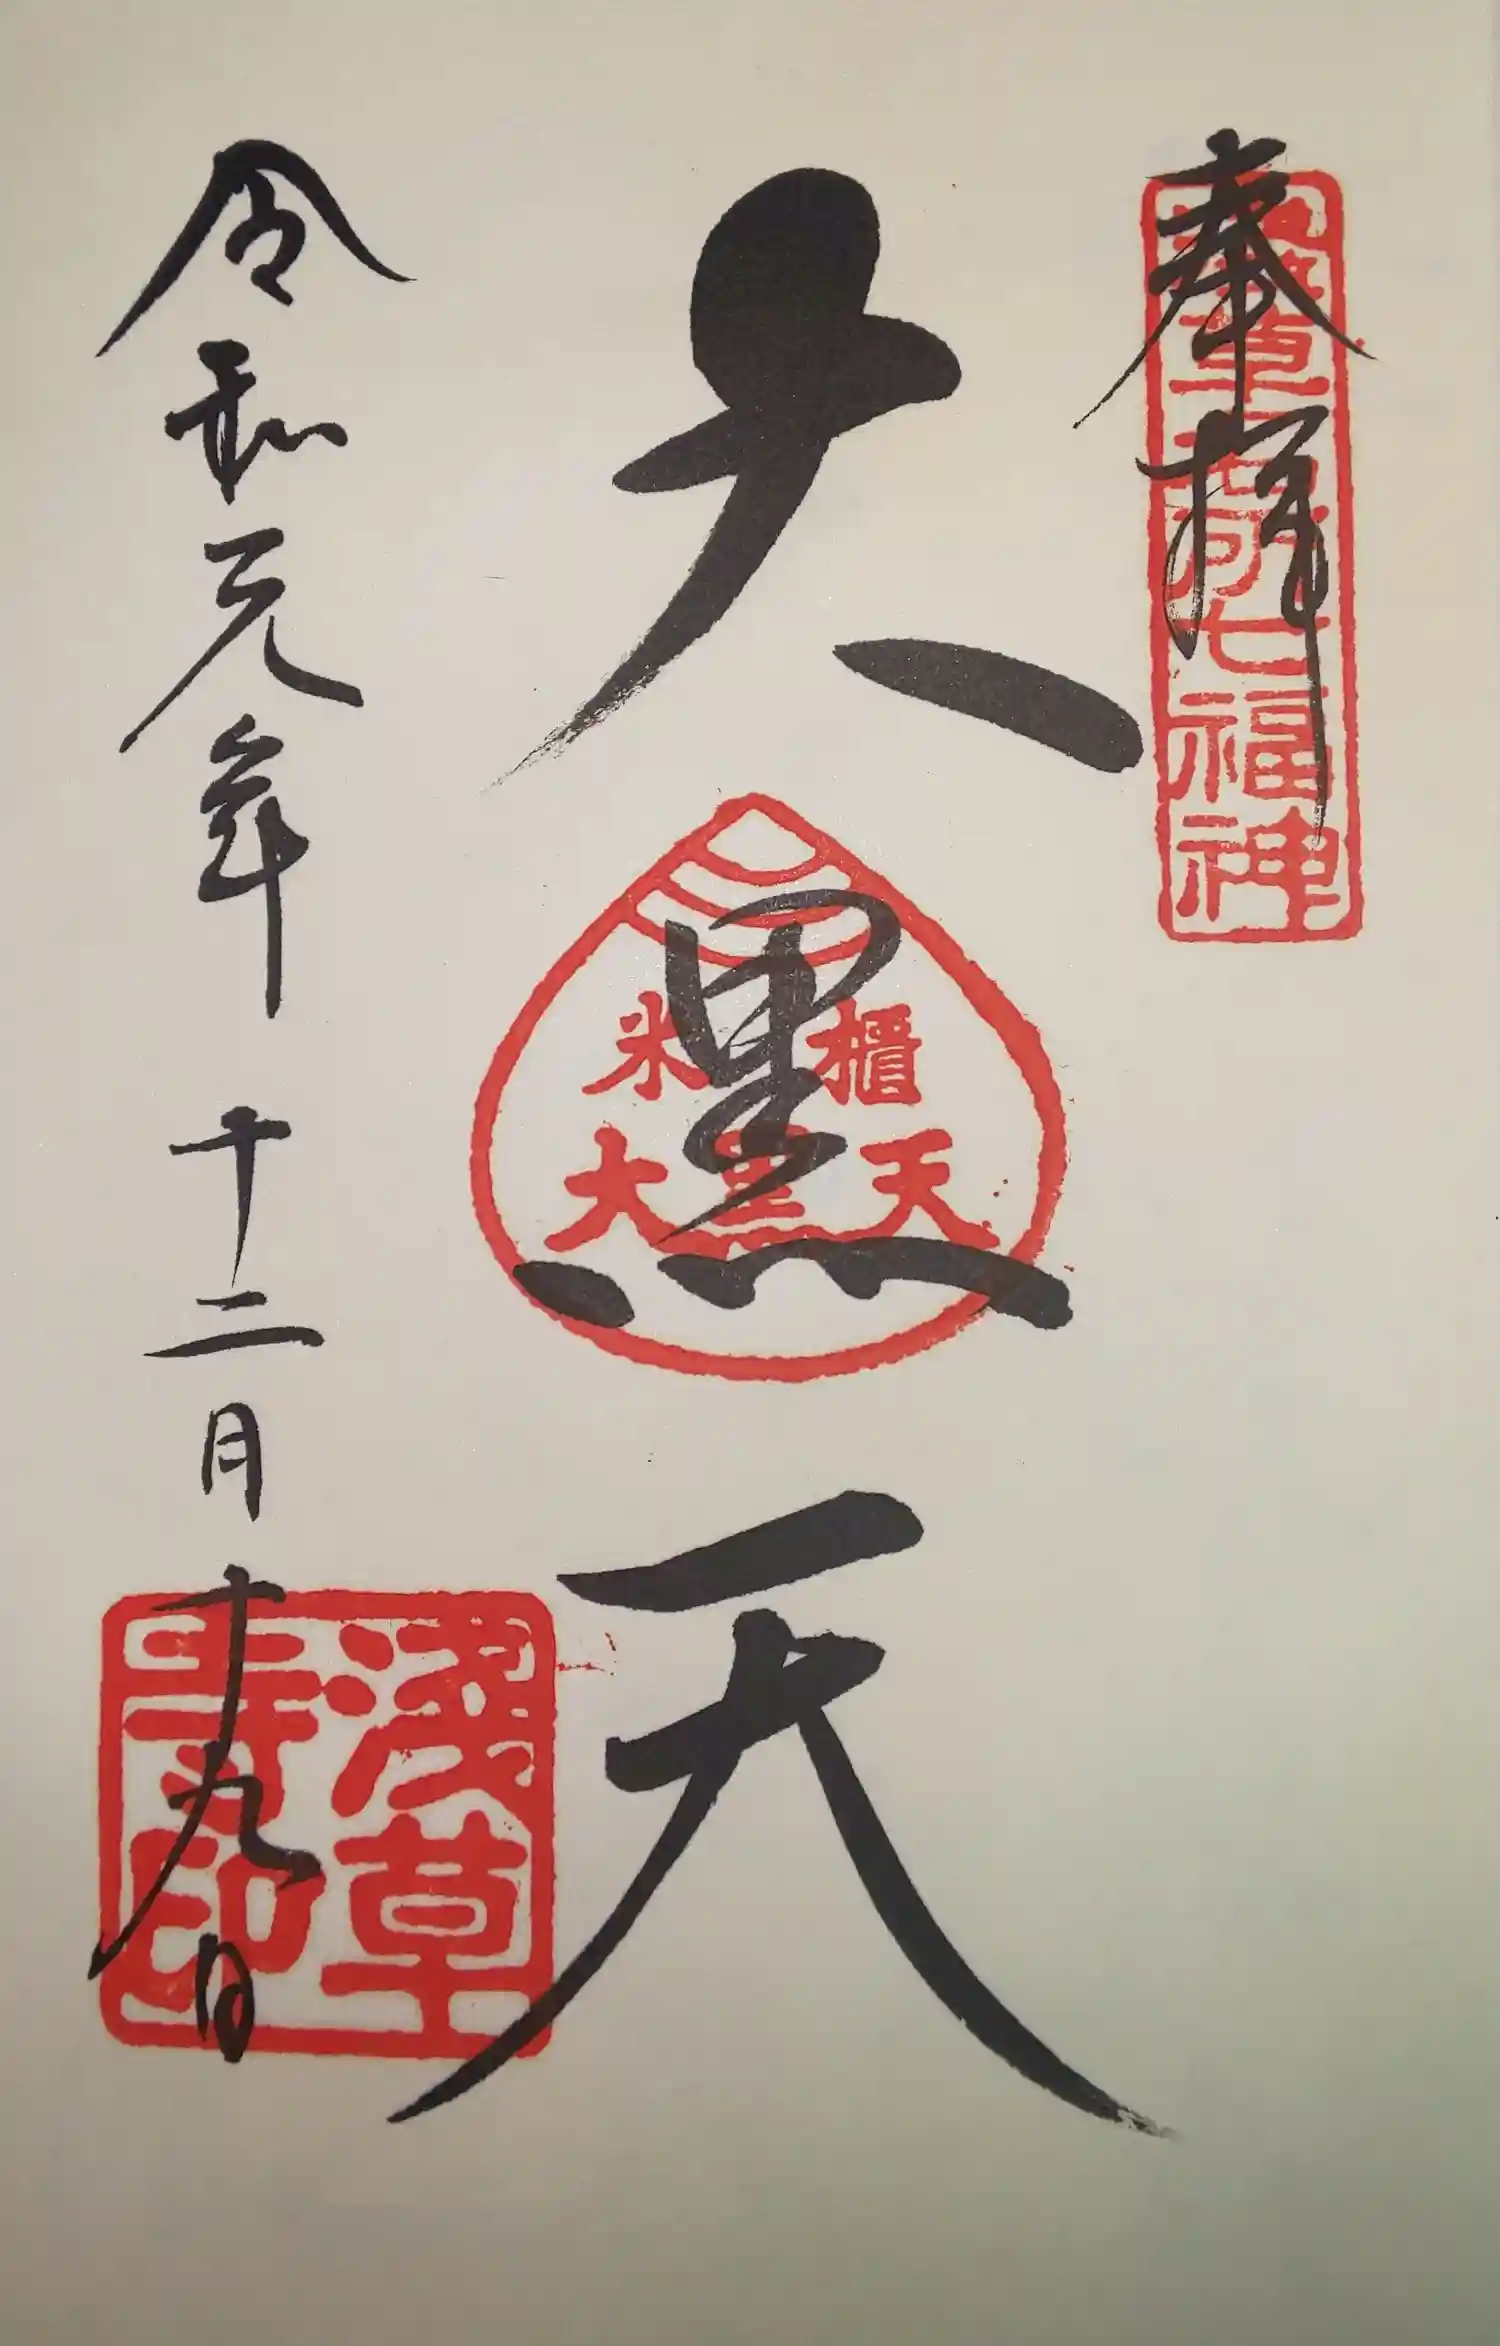 奉拝
浅草名所七福神
大黒天
米櫃
大黒天
令和元年 十二月十九日
淺草
寺印